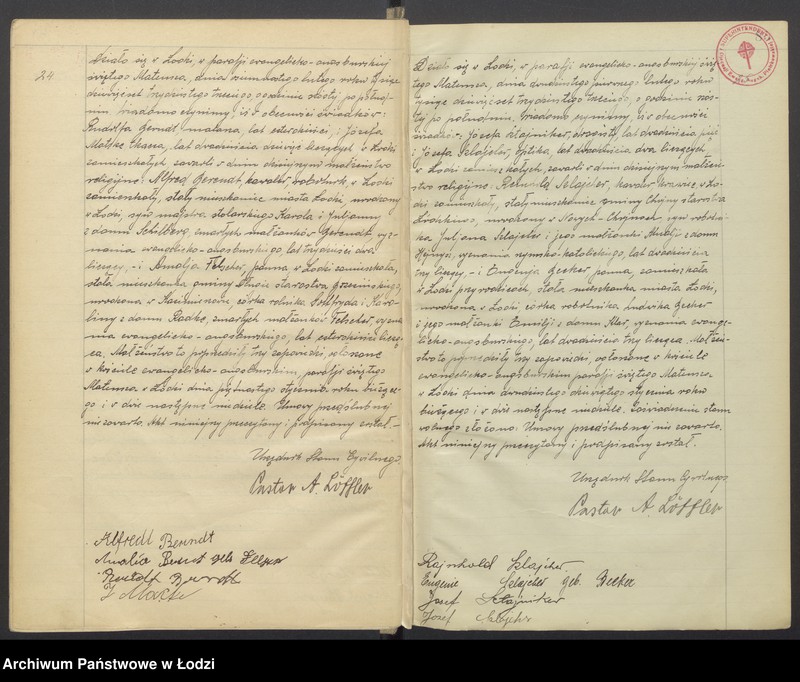 24
Działo się w Łodzi, w parafji ewangelicko-augsburskiej
świętego Mateusza, dnia lutego roku tysiąc
dziewięćset trzydziestego trzeciego o godzinie szóstej po połud-
niu. Wiadomo czynimy, iż w obecności świadków:
Rudolfa Berndt malarza, lat czterdzieści, i Józefa
Matzke lat dwadzieścia dziewięć liczących w Łodzi
zamieszkałych zawarli w dniu dzisiejszym małżeństwo
religijne: Alfred Berendt, kawaler, robotnik, w Łodzi
zamieszkały, stały mieszkaniec miasta Łodzi, urodzony
w Łodzi, syn majstra stolarskiego Karola i Juljanny
z domu Schilberg, zmarłych małżonków Berendt, wyz-
nania ewangelicko-augsburskiego, lat trzydzieści dwa
liczący, - i Amalja Felscher, panna, w Łodzi zamieszkała,
stała mieszkanka gminy starostwa Brzezińskiego,
urodzona w Kazimierzu, córka rolnika Gotfryda i Karo-
liny z domu Radke, zmarłych małżonków Felscher, wyzna
nia ewangelicko-augsburskiego, lat czterdzieści liczą-
ca. Małżeństwo to poprzedziły trzy zapowiedzi, ogłoszone
w kościele ewangelicko-augsburskim, parafji świętego
Mateusza w Łodzi dnia piętnastego stycznia roku bieżące-
go i w dwie następne niedziele. Umowy przedślubnej
nie zawarto. Akt niniejszy przeczytany i podpisany został. -
Urzędnik Stanu Cywilnego
Pastor A. Löffler
Alfredt Berndt
Amalia
Rudolf Berndt
J Matzke
Działo się w Łodzi, w parafji ewangelicko-augsburskiej świę-
tego Mateusza, dnia dwudziestego pierwszego lutego roku
tysiąc dziewięćset trzydziestego trzeciego, o godzinie szós-
tej po południu. Wiadomo czynimy, iż w obecności
świadków: Józefa Szlajniker, lat dwadzieścia pięć
i Józefa Szlajcher, lat dwadzieścia dwa liczących
w Łodzi zamieszkałych, zawarli w dniu dzisiejszym małżeń-
stwo religijne: Szlajcher, kawaler, krawiec, w Ło-
dzi zamieszkały, stały mieszkaniec gminy Chojny starostwa
Łódzkiego, urodzony w Nowych-Chojnach syn robotni-
ka Juljana Szlajcher i jego małżonki z domu
wyznania rzymsko-katolickiego, lat dwadzieścia
trzy liczący, - i Eugenja Becker panna, zamieszkała
w Łodzi przy rodzicach, stała mieszkanka miasta Łodzi,
urodzona w Łodzi, córka robotnika Ludwika Becker
i jego małżonki Emilji z domu wyznania ewange-
licko-augsburskiego, lat dwadzieścia trzy licząca. Małżeń-
stwo to poprzedziły trzy zapowiedzi, ogłoszone w kościele
ewangelicko-augsburskim parafji świętego Mateusza
w Łodzi dnia dwudziestego dziewiątego stycznia roku
bieżącego i w dwie następne niedziele. Zaświadczenie stanu
wolnego złożono. Umowy przedślubnej nie zawarto.
Akt niniejszy przeczytany i podpisany został.
Urzędnik Stanu Cywilnego
Pastor A. Löffler
Rajnhold Szlajcher
Eugenie Szlajcher geb. Becker
Josef Szlajniker
Józef Szlajcher
Archiwum Państwowe w Łodzi